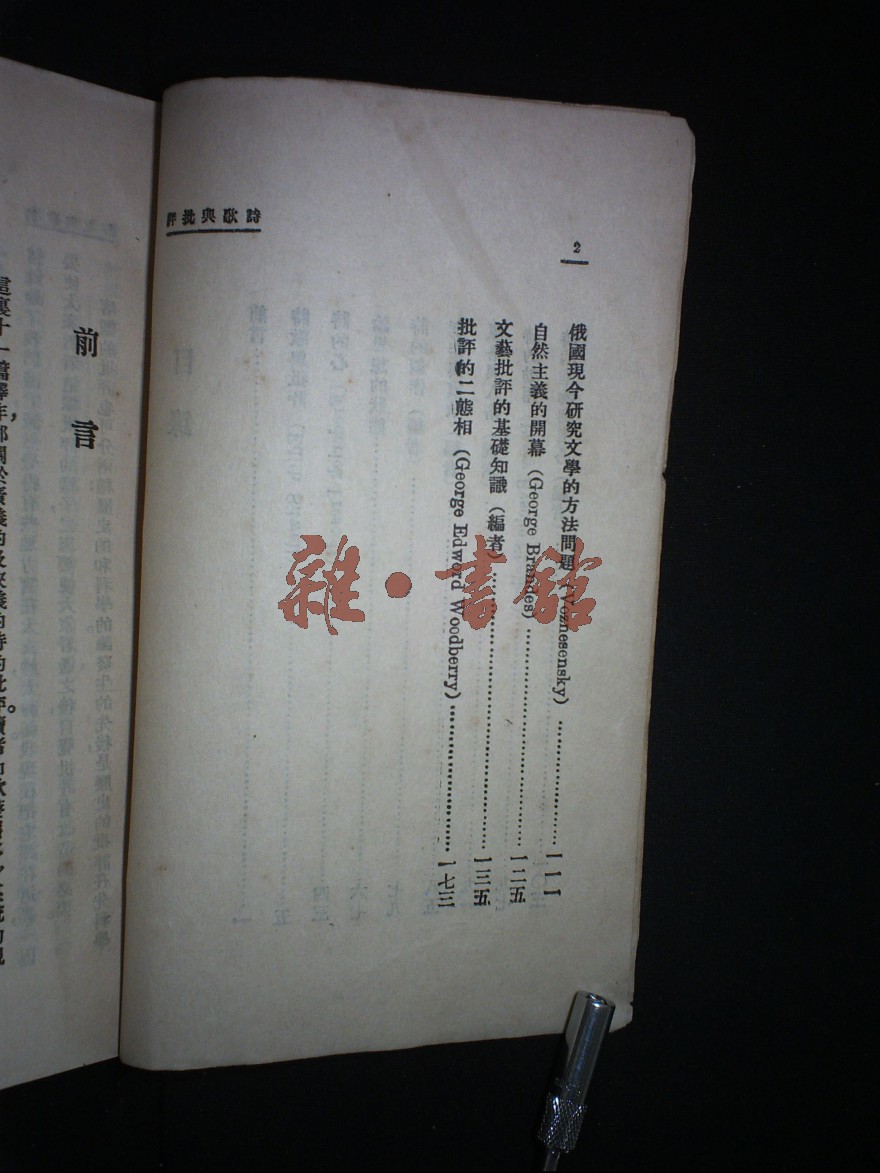 詩歌與批評
2
俄國現今研究文學的方法問題 (Voznesensky)……………一一一
自然主義的開幕 (George Brandes)……………………一二五
文藝批評的基礎知識 (編者)……………………………一三五
批評的二態相 (George Edword Woodberry)……………一七三
前言
這裏十一篇譯作，都關於廣義的及狹義的詩的批評。讀者
雜·書館